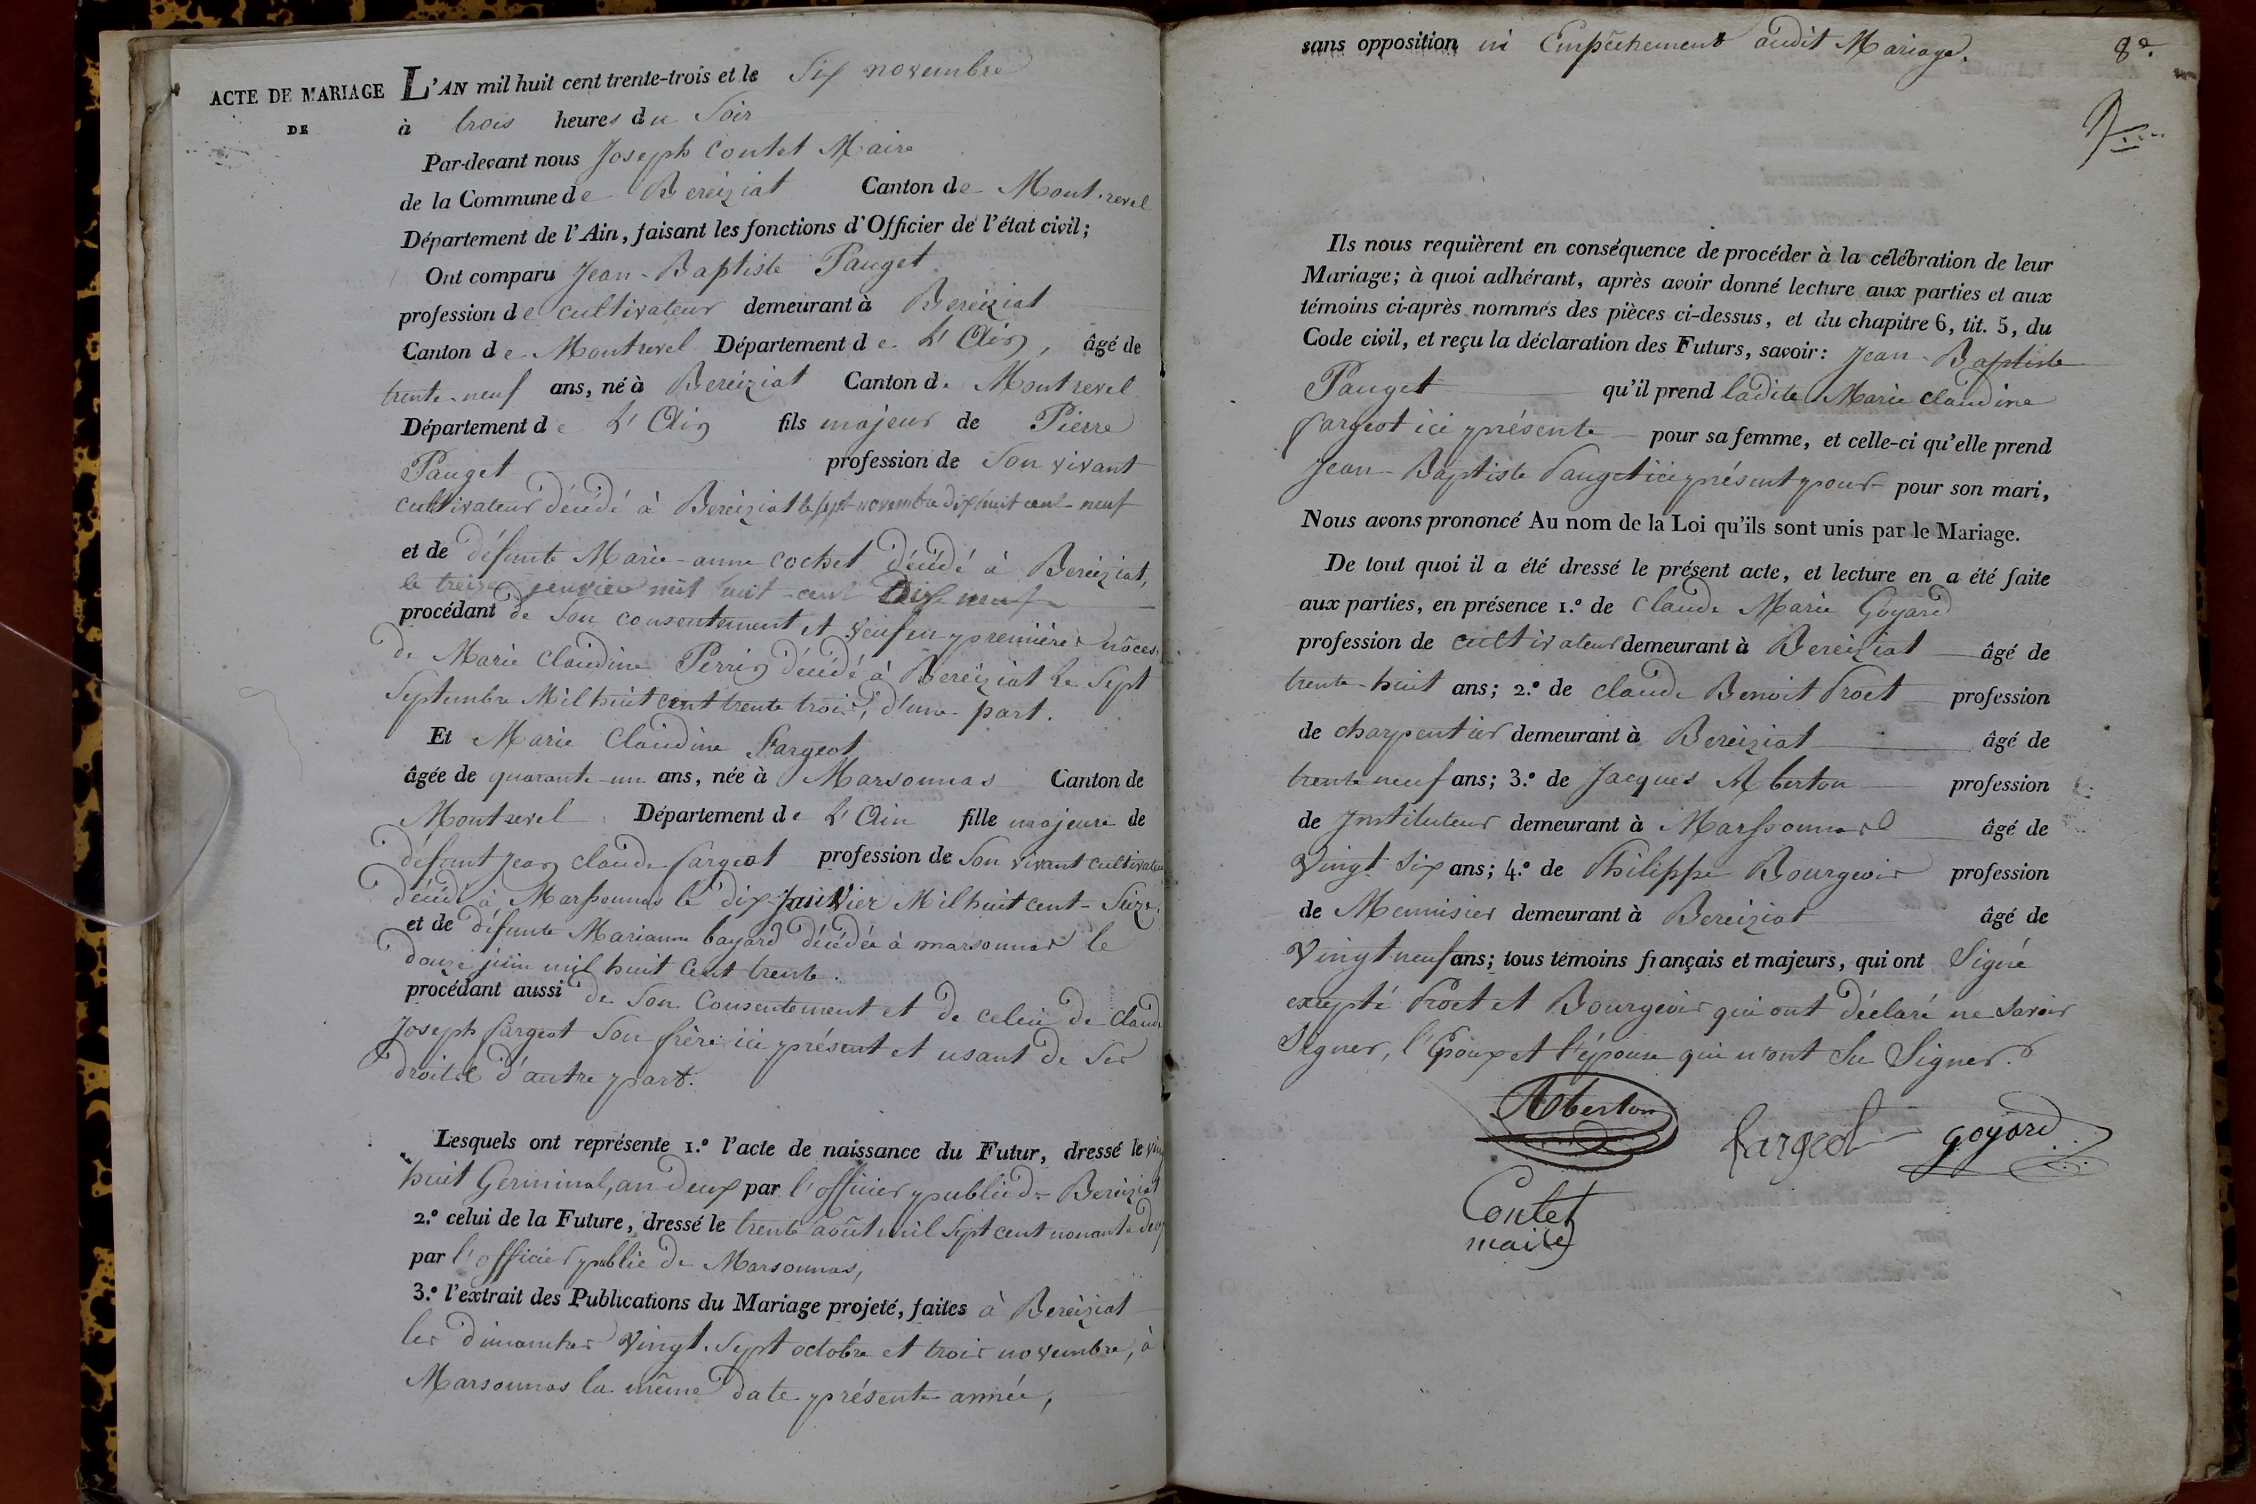 ACTE DE MARIAGE
DE
L'AN mil huit cent trente-trois et le Six novembre
à trois heures du Soir
Par-devant nous Joseph Contet Maire
de la Commune de Bereiziat Canton de Mont-revel
Département de l'Ain, faisant les fonctions d'Officier de l'état civil;
Ont comparu Jean-Baptiste Pauget
profession de cultivateur demeurant à Bereiziat
Canton de Montrevel Département de L'Ain, âgé de
trente-neuf ans, né à Bereiziat Canton de Montrevel
Département de L'Ain fils majeur de Pierre
Pauget profession de Son vivant
cultivateur décédé à Bereiziat le sept novembre dix huit cent-neuf
et de défunte Marie-anne cochet décédé à Bereiziat,
le treize janvier mil huit-cent Dix neuf
procédant de Son consentement et veuf en première nôces,
de Marie Claudine Perrin décédé à Bereiziat Le Sept
Septembre Mil huit cent trente trois, d'une part.
Et Marie Claudine Fargeot
âgée de quarante-un ans, née à Marsonnas Canton de
Montrevel Département de L'Ain fille majeure de
défunt Jean claude fargeot profession de Son vivant cultivateur
décédé à Marsonnas le dix Janvier Mil huit cent-Seize.
et de défunte Marianne bayard décédéé à marsonnas le
douze juin mil huit Cent trente.
procédant aussi de Son Consentement et de celui de Claude
Joseph fargeot Son frère ici présent et usant de Ses
droits d'autre part.
Lesquels ont représente 1.º l'acte de naissance du Futur, dressé le
huit Germinal, an deux par l'officier public de Bereiziat
2.º celui de la Future, dressé le trente août mil Sept cent nonante Deux
par l'officier public de Marsonnas,
3.º l'extrait des Publications du Mariage projeté, faites à Bereiziat
les dimanches Vingt-Sept octobre et trois novembre, à
Marsonnas la même date présente année,
sans opposition ni Empêchement audit Mariage.
8e.
Ils nous requièrent en conséquence de procéder à la célébration de leur
Mariage; à quoi adhérant, après avoir donné lecture aux parties et aux
témoins ci-après nommés des pièces ci-dessus, et du chapitre 6, tit. 5, du
Code civil, et reçu la déclaration des Futurs, savoir: Jean-Baptiste
Pauget qu'il prend ladite Marie Claudine
fargeot ici présente pour sa femme, et celle-ci qu'elle prend
Jean-Baptiste Pauget ici présent pour pour son mari,
Nous avons prononcé Au nom de la Loi qu'ils sont unis par le Mariage.
De tout quoi il a été dressé le présent acte, et lecture en a été faite
aux parties, en présence 1.º de Claude Marie Goyard
profession de cultivateur demeurant à Bereiziat âgé de
trente-huit ans; 2.º de claude Benoit Proet profession
de charpentier demeurant à Bereiziat âgé de
trente neuf ans; 3.º de Jacques Aberton profession
de Instituteur demeurant à Marsonnas âgé de
Vingt Six ans; 4.º de Philippe Bourgeois profession
de Menuisier demeurant à Bereiziat âgé de
Vingt neuf ans; tous témoins français et majeurs, qui ont Signé
excepté Proet et Bourgeois qui ont déclaré ne Savoir
Signer, l'Epoux et l'épouse qui n'ont Su Signer.
Aberton fargeot goyard
Contet
maire